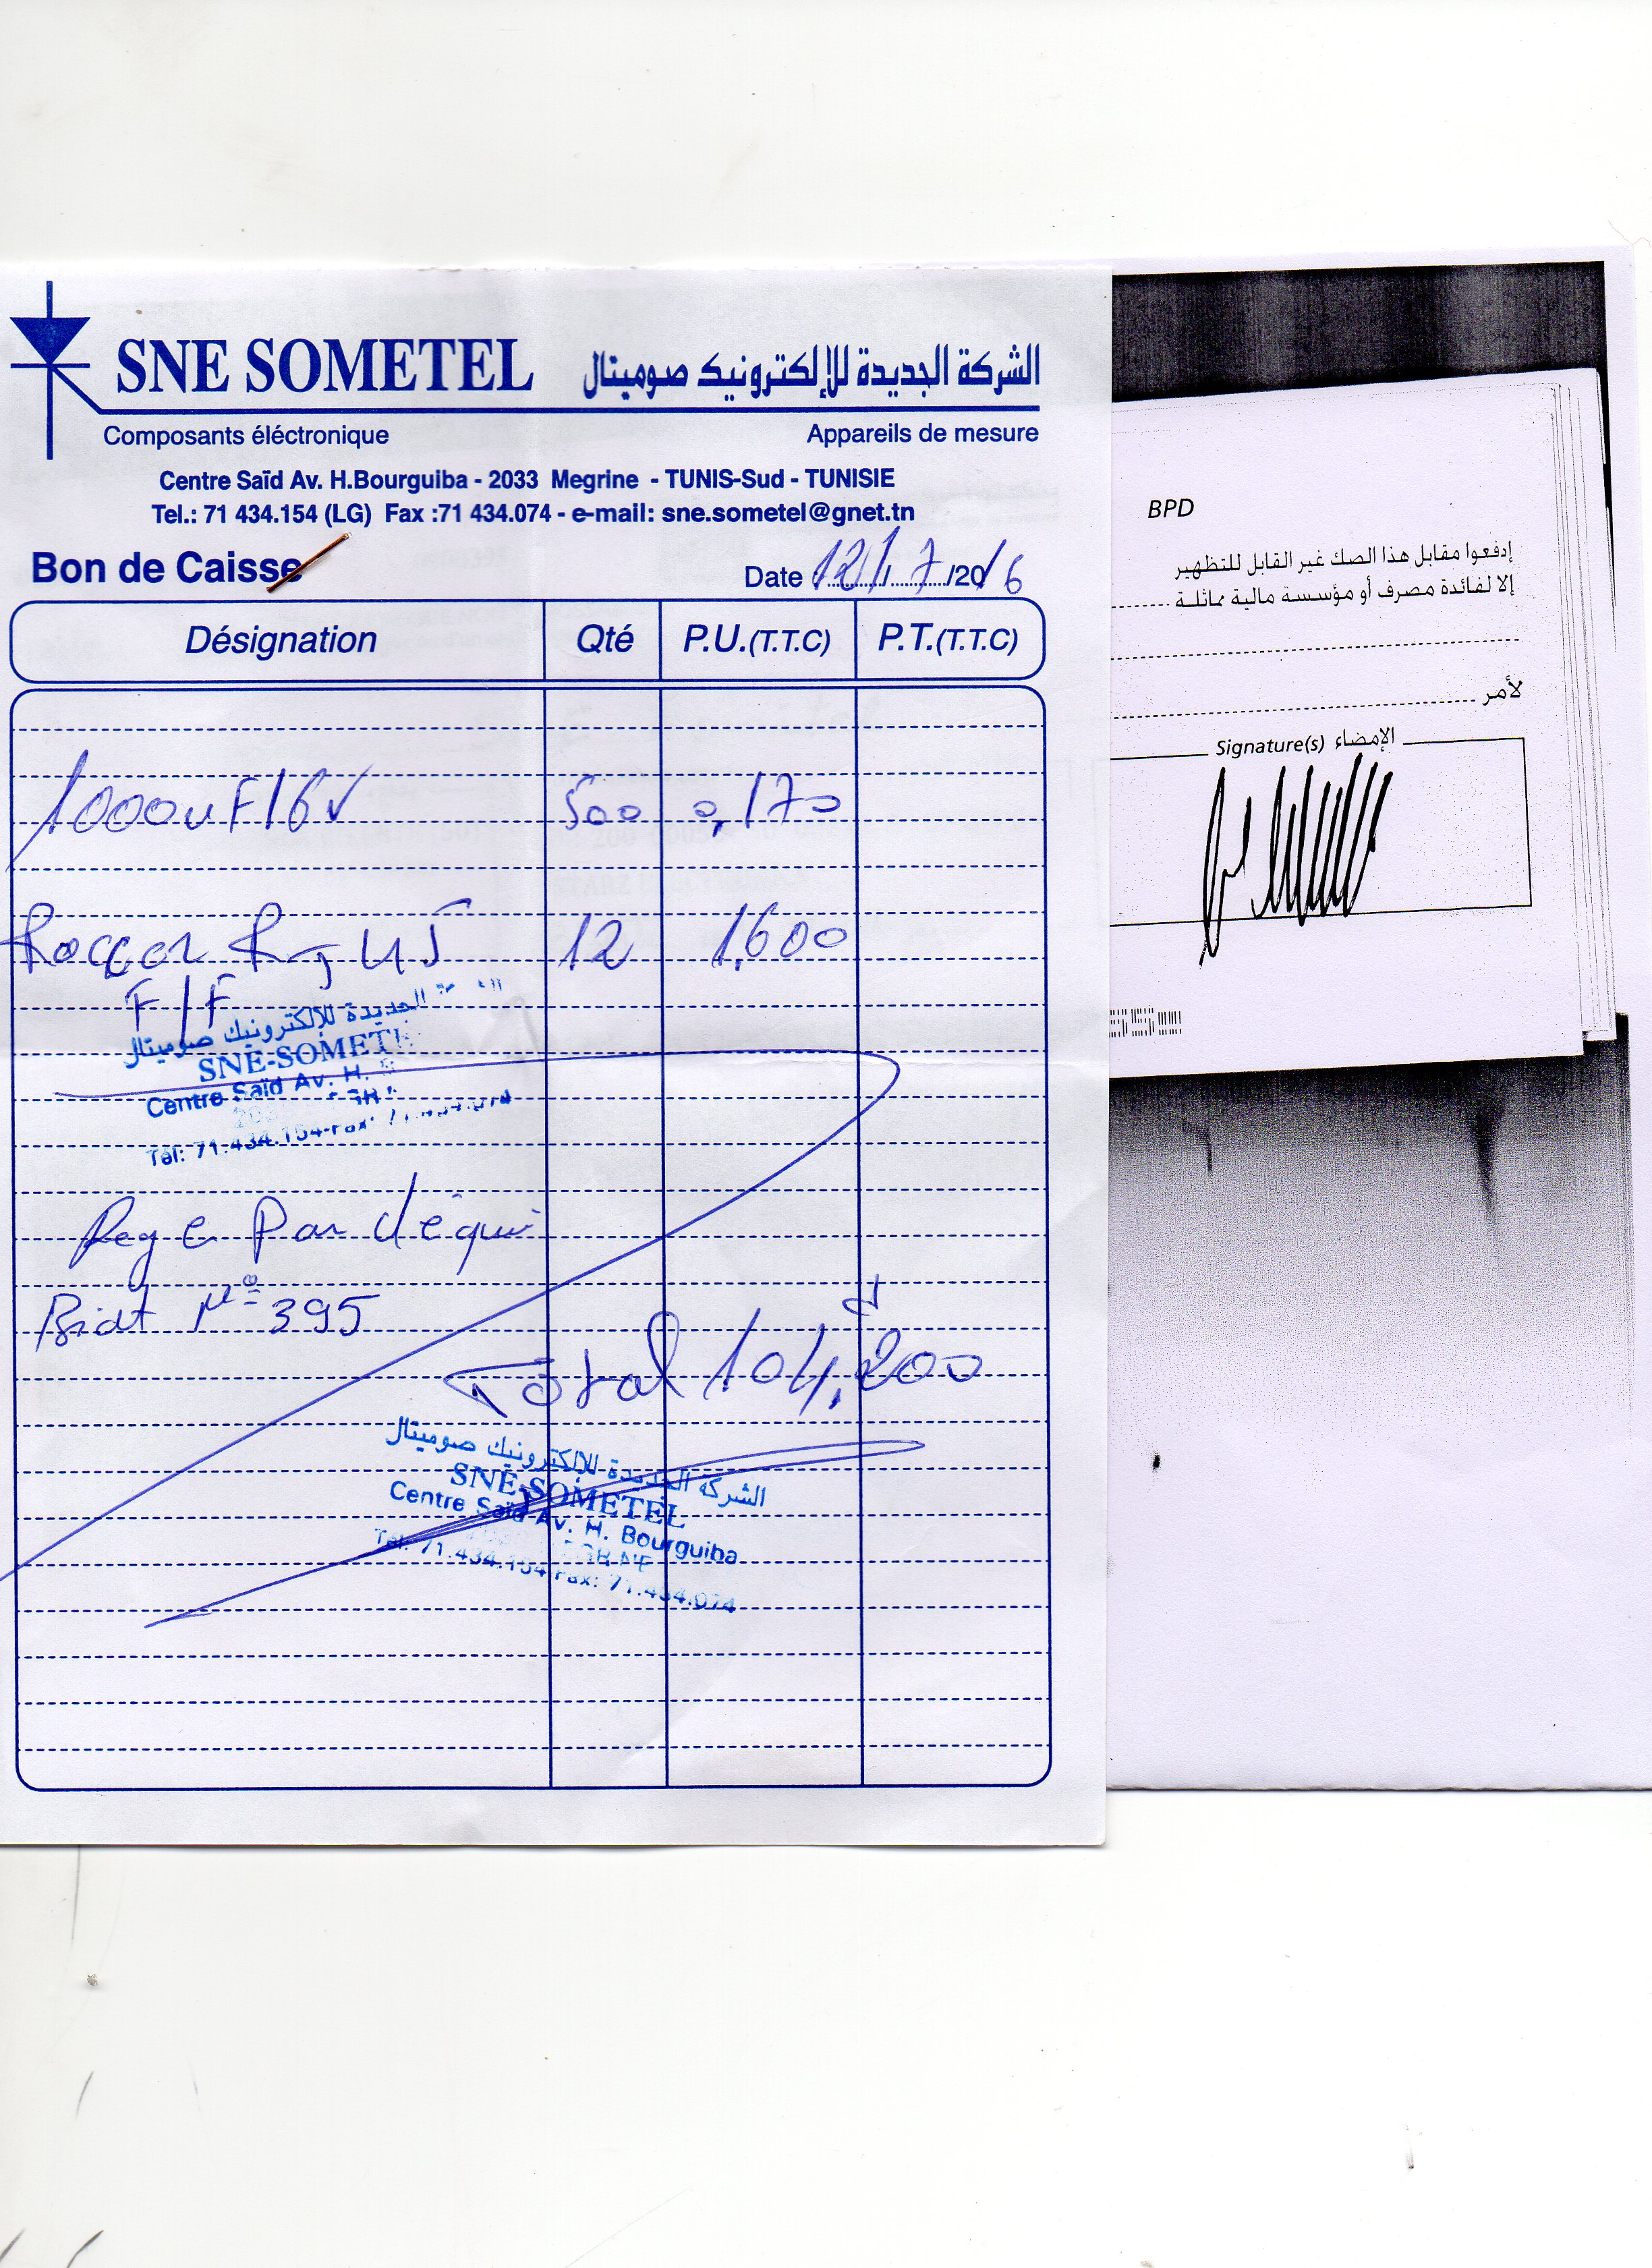 SNE SOMETEL الشركة الجديدة للإلكترونيك صوميتال
Composants éléctronique Appareils de mesure
Centre Saïd Av. H.Bourguiba - 2033 Megrine - TUNIS-Sud - TUNISIE
Tel.: 71 434.154 (LG) Fax :71 434.074 - e-mail: sne.sometel@gnet.tn
Bon de Caisse Date 12/7/2016
Désignation Qté P.U.(T.T.C) P.T.(T.T.C)
1000uF16V 500 0,170
Raccor RJ45 12 1,600
F/F
الجديدة للإلكترونيك صوميتال
SNE-SOMET
Centre Saïd Av. H.
Tél: 71.434.154-Fax: 71.434.074
Regle Par chèque
Biat N° 395
Total 104,200
الشركة الجديدة للإلكترونيك صوميتال
SNE-SOMETEL
Centre Saïd Av. H. Bourguiba
Tél: 71.434.154-Fax: 71.434.074
BPD
إدفعوا مقابل هذا الصك غير القابل للتظهير
إلا لفائدة مصرف أو مؤسسة مالية مماثلة
لأمر
Signature(s) الإمضاء